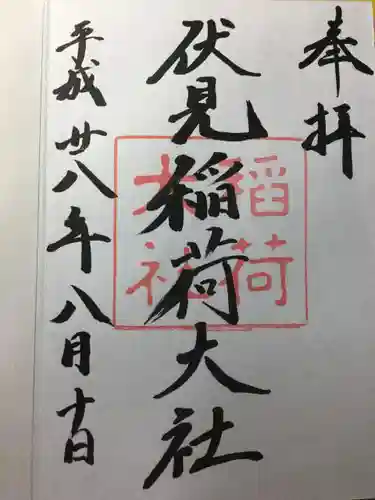 奉拝
伏見稲荷大社
稲荷
大社
平成廿八年八月十日